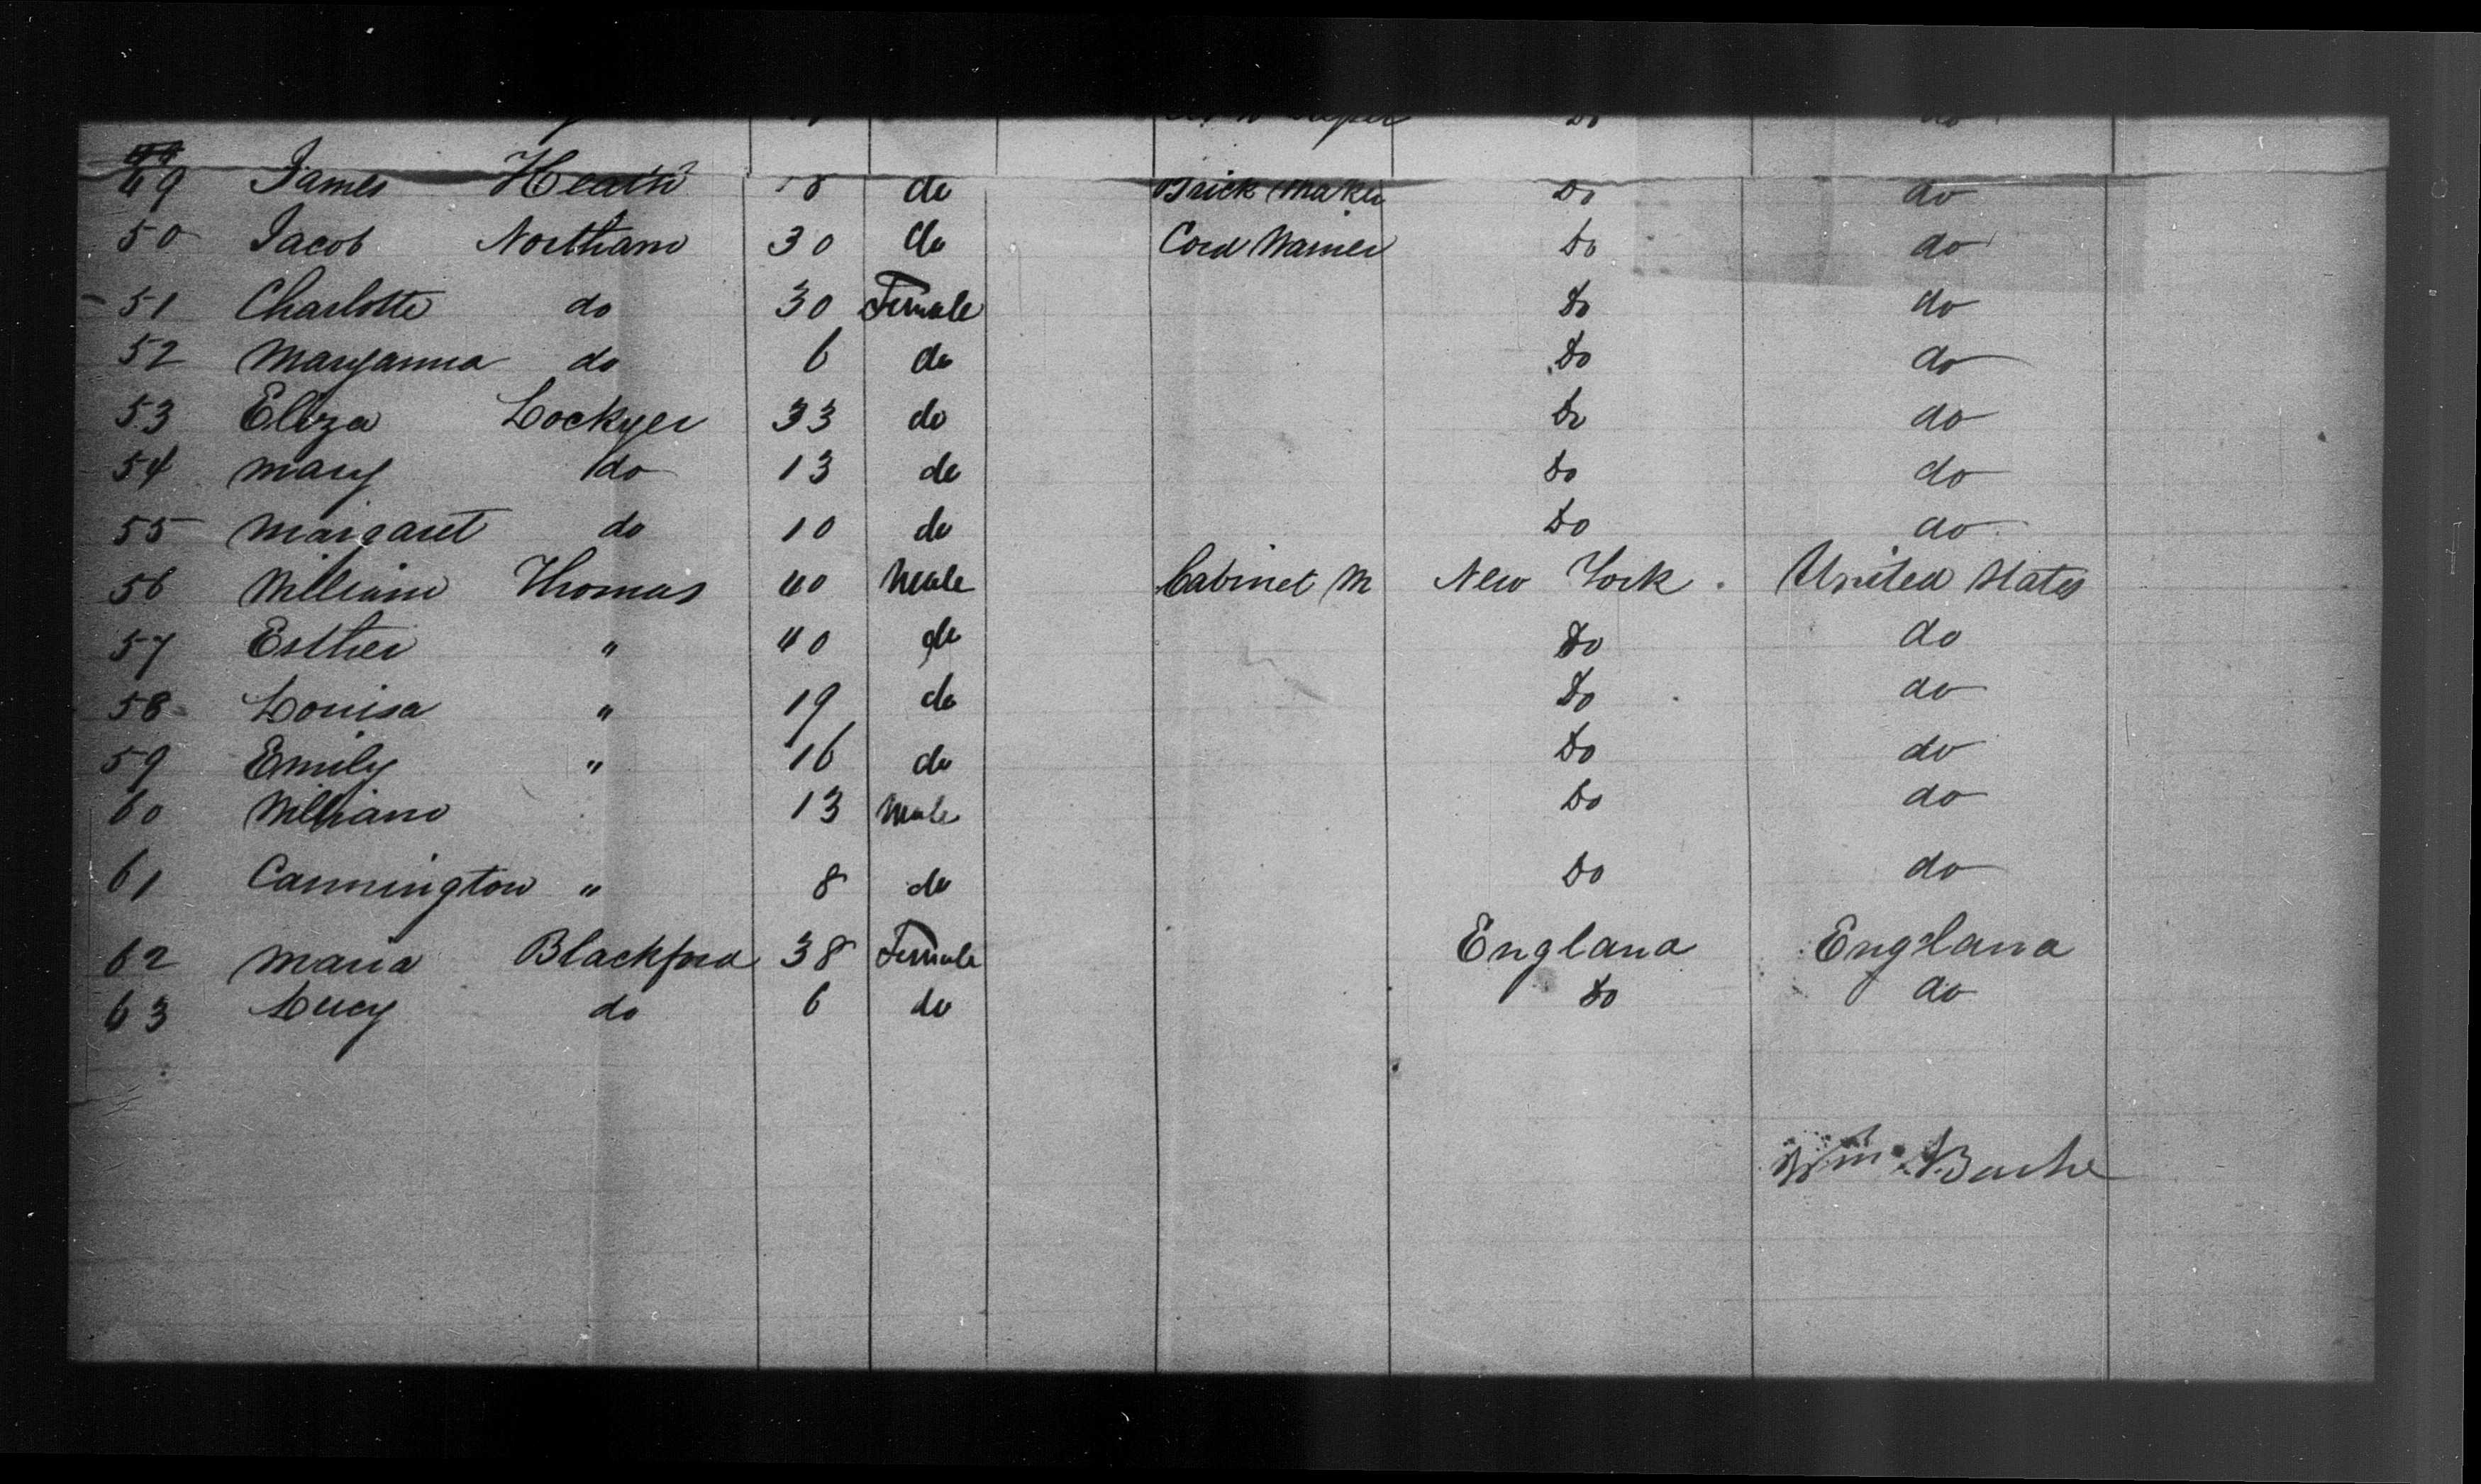 Do do
49 James Heath 18 do Brick Maker Do do
50 Jacob Northam 30 do Cord Wainer Do do
51 Charlotte do 30 Female Do do
52 Maryanna do 6 do Do do
53 Eliza Lockyer 33 do Do do
54 Mary do 13 do Do do
55 Margaret do 10 do Do do
56 William Thomas 40 Male Cabinet M New York United States
57 Esther " 40 do Do do
58 Louisa " 19 do Do do
59 Emily " 16 do Do do
60 William 13 Male Do do
61 Cannington " 8 do Do do
62 Maria Blackford 38 Female England England
63 Lucy do 6 do Do do
Wm